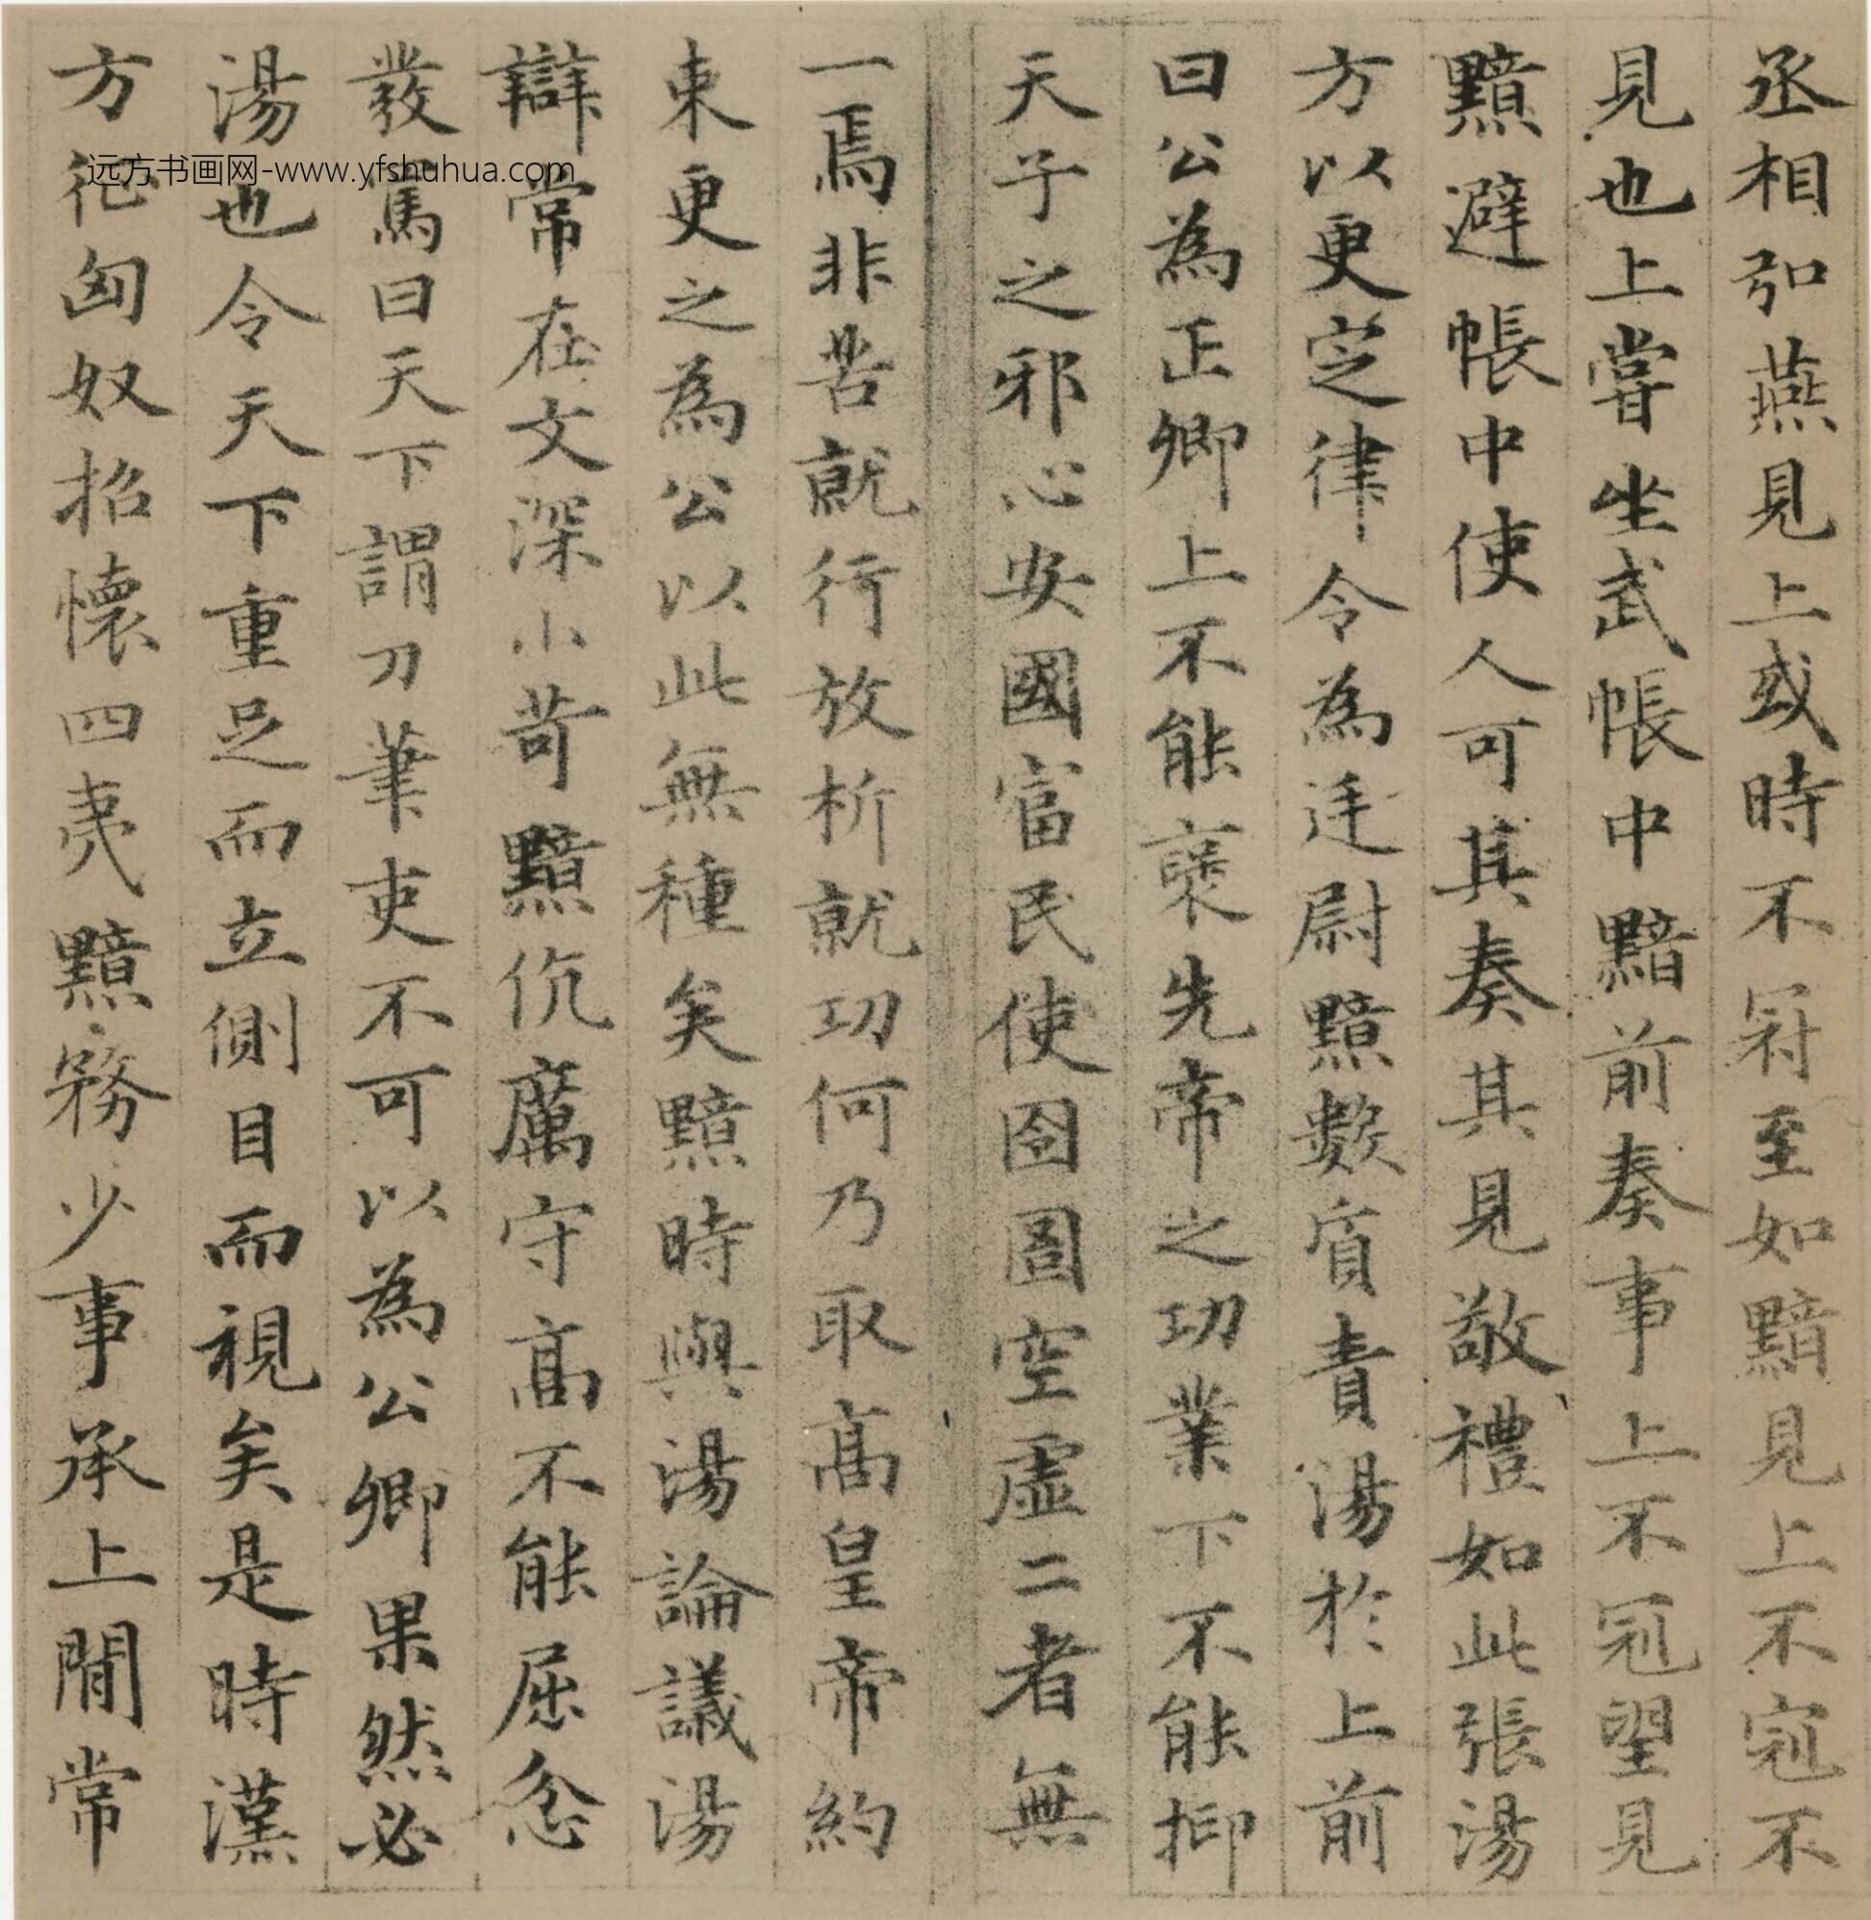 丞相弘燕見上或時不冠至如黯見上不冠不
見也上嘗坐武帳中黯前奏事上不冠望見
黯避帳中使人可其奏其見敬禮如此張湯
方以更定律令為廷尉黯數質責湯於上前
曰公為正卿上不能褒先帝之功業下不能抑
天子之邪心安國富民使囹圄空虛二者無
一焉非苦就行放析就功何乃取高皇帝約
束更之為公以此無種矣黯時與湯論議湯
辯常在文深小苛黯伉厲守高不能屈忿
發罵曰天下謂刀筆吏不可以為公卿果然必
湯也令天下重足而立側目而視矣是時漢
方征匈奴招懷四夷黯務少事承上閒常
远方书画网-www.yfshuhua.com